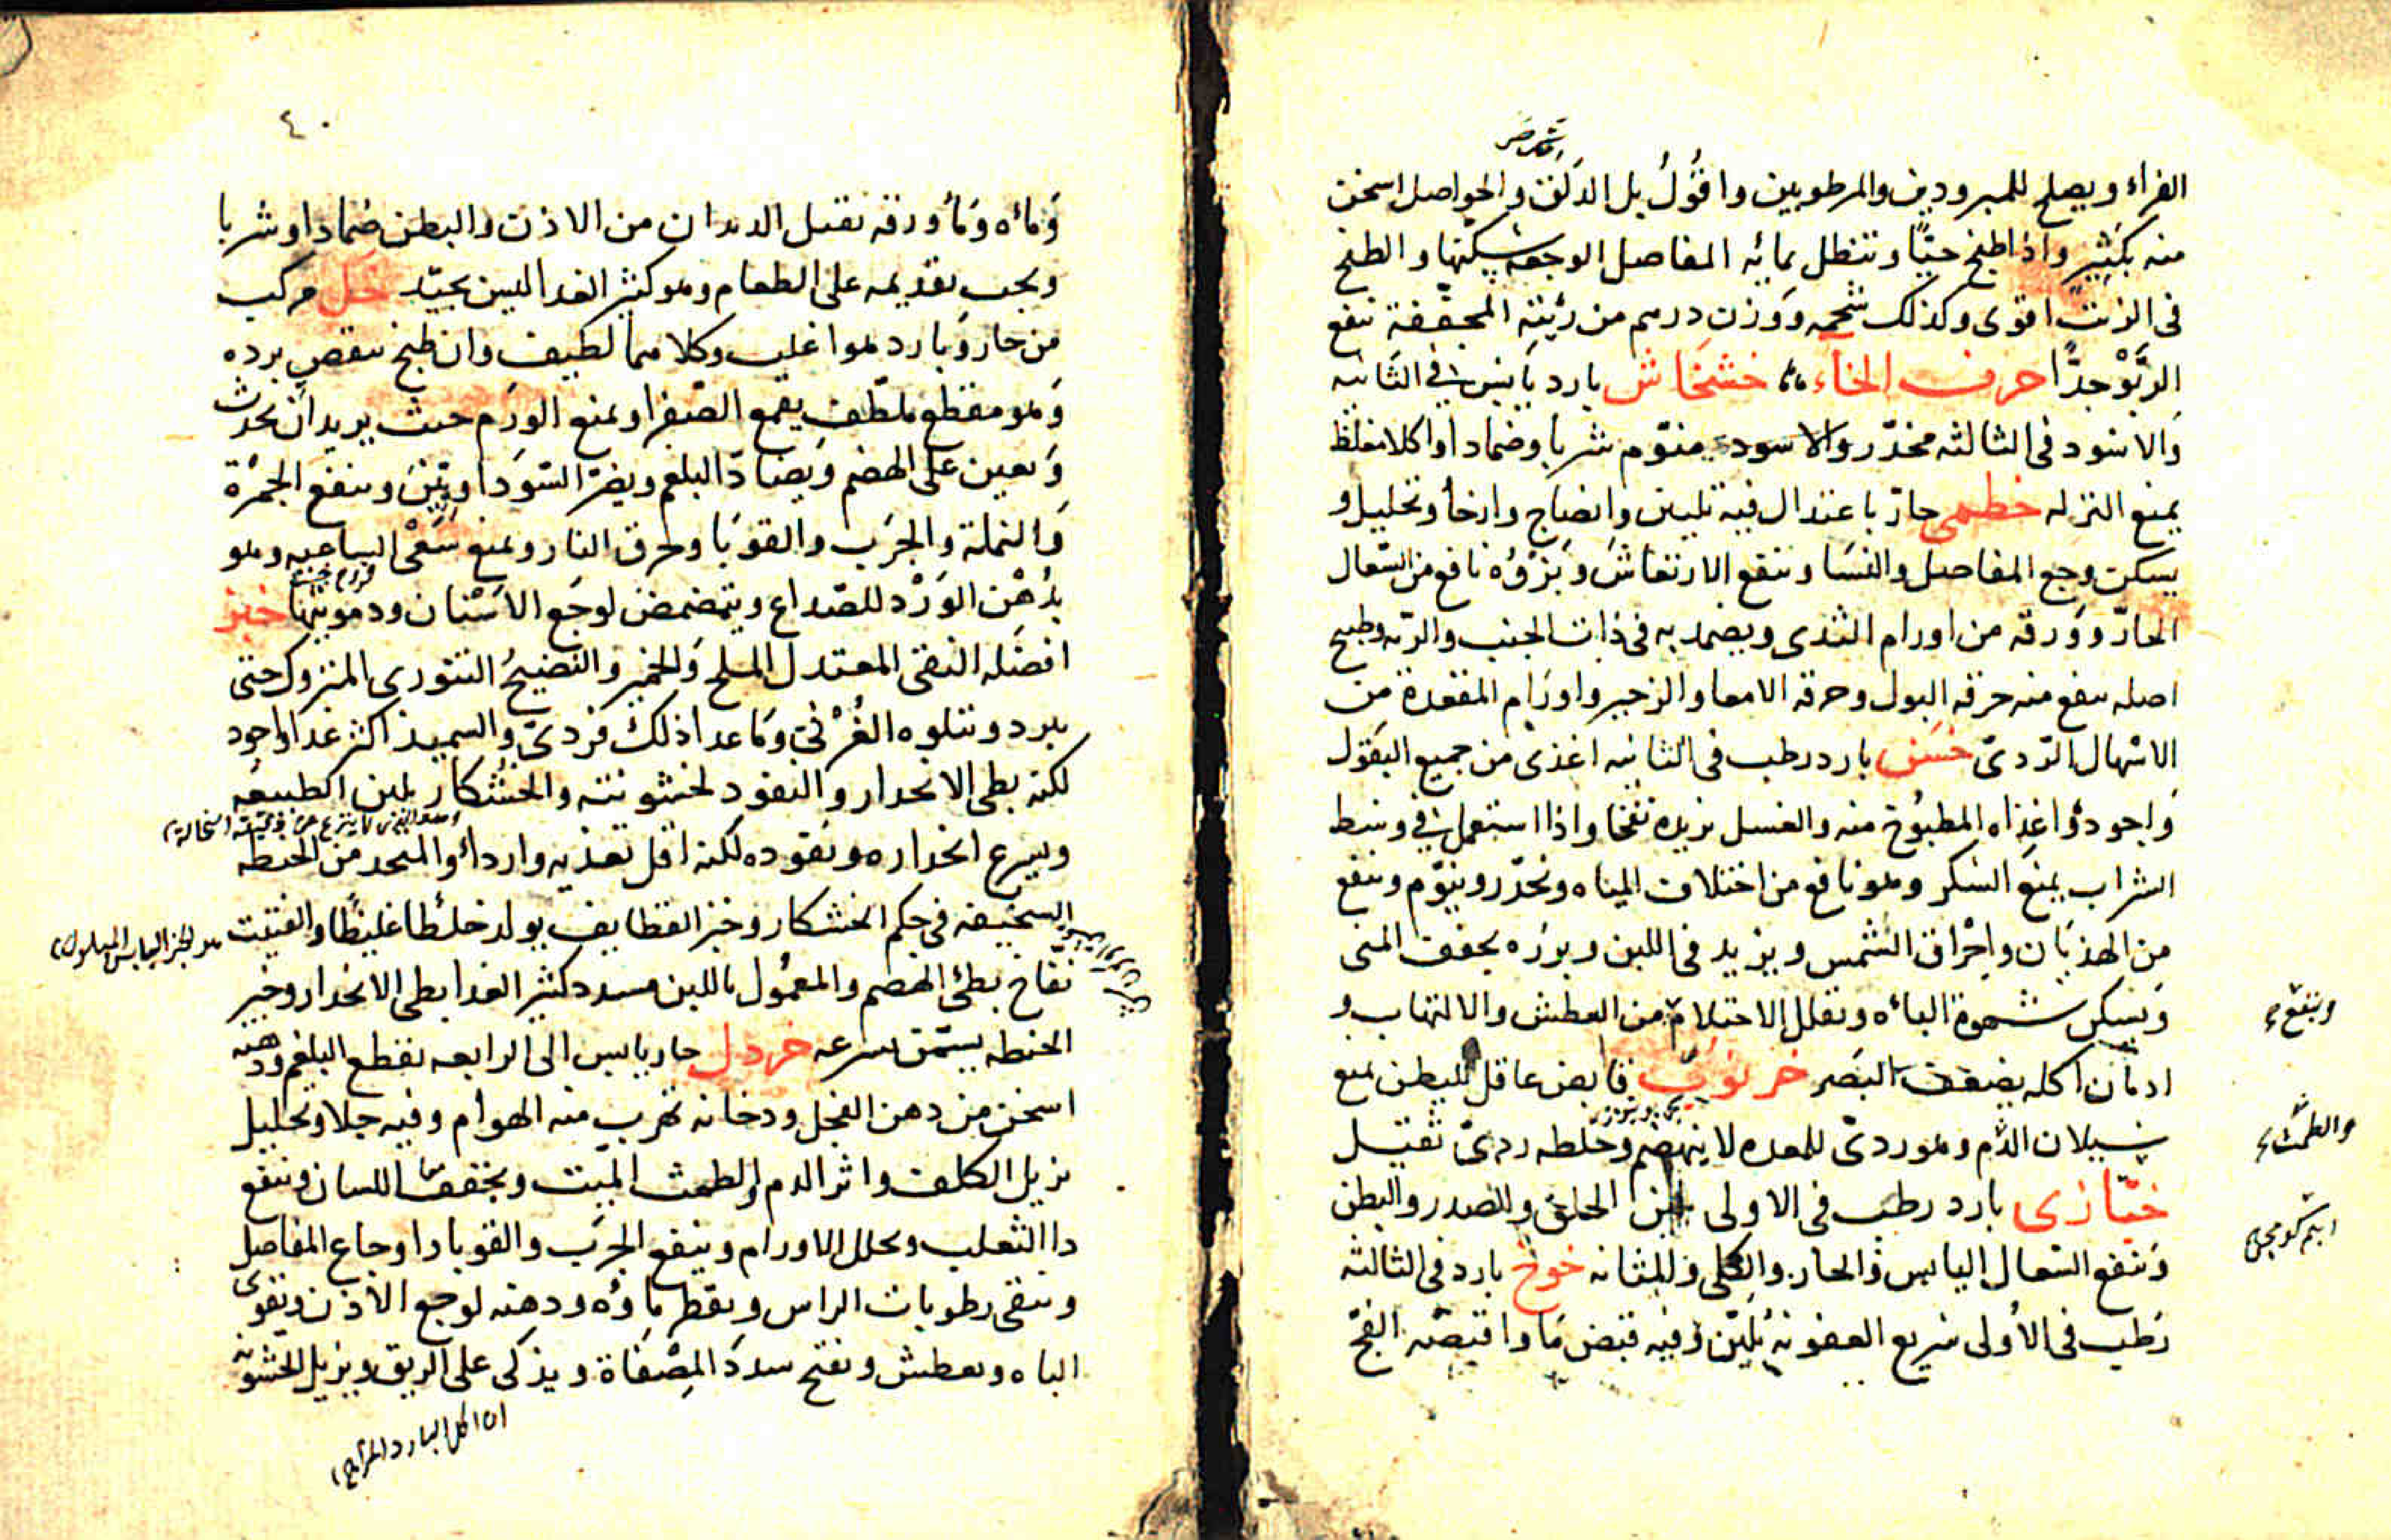 الفراء ويصلح للمبرودين والمرطوبين واقول بل الدلق والحواصل اسخن
منه بكثير واذا طبخ حيًّا وتنطل بمائه المفاصل الوجعه سكنها والطبخ
فى الزيت اقوى وكذلك شحمه ووزن درهم من رئته المجففة تنفع
الربو جدًّا حرف الخاء خشخاش بارد يابس فى الثانيه
والاسود فى الثالثه مخدّر والاسود منوّم شربا وضمادا واكلا مغلظ
يمنع النزله خطمى حارّ باعتدال فيه تليين وانضاج وارخا وتحليل و
يسكن وجع المفاصل والنسا وينفع الارتعاش وبزره نافع من السّعال
الحارّ وورقه من اورام الثدى ويضمد به فى ذات الجنب والريه وطبيخ
اصله ينفع منه حرقه البول وحرقه الامعا والزحير واورام المقعدة من
الاسهال الردىّ خس بارد رطب فى الثانيه اغذى من جميع البقول
واجوده واغذاه المطبوخ منه والغسل يزيده نفخا واذا استعمل فى وسط
الشراب يمنع السكر وهو نافع من اختلاف المياه ويخدّر وينوّم وينفع
من الهذيان واحراق الشمس ويزيد فى اللبن وبزره يجفف المنى
ويسكن شهوة الباه ويقلل الاحتلام من العطش والالتهاب و
وينفع
ادمان اكله يضعف البصر خرنوب قابض عاقل للبطن يمنع
سيلان الدم وهو ردىّ للمعده لا ينهضم وخلطه ردىّ ثقيل
والطمث
خبّازى بارد رطب فى الاولى يلين الحلق والصدر والبطن
وينفع السّعال اليابس والحار والكلى والمثانه خوخ بارد فى الثالثه
رطب فى الاولى سريع العفونه يليّن وفيه قبض ما واقبضه الفجّ
٤٠
وماه وما ورقه تقتل الديدان من الاذن والبطن ضمادا وشربا
ويجب تقديمه على الطعام وهو كثير الغدا ليس بجيّد خل مركب
من حار وبارد هو اغلب وكلاهما لطيف وان طبخ ينقص برده
وهو مقطع ملطّف يقمع الصفرا ويمنع الورم حيث يريد ان يحدث
ويعين على الهضم ويضادّ البلغم ويضرّ السّودا وينفع الحمرة
والنملة والجرب والقوبا وحرق النار ويمنع سعى الساعيه وهو
بدهن الورد للصّداع ويتمضمض لوجع الاسنان ودمويتها خبز
افضله النقى المعتدل الملح والخمير والنضيج التنورى المتروك حتى
يبرد ويتلوه الفرنى وما عدا ذلك فردىّ والسميد اكثر غدا واجود
لكنه بطى الانحدار والنفود لخشونته والخشكار يلين الطبيعه
ويسرع انحداره ونفوده لكنه اقل تغذيه واردا والمتخد من الحنطه
السخيفه فى حكم الخشكار وخبز القطايف يولد خلطا غليظا والفتيت
هو الخبز اليابس المبلول
نفّاخ بطى الهضم والمعمول باللبن مسدد كثير الغدا بطى الانحدار وخبز
الحنطه يسمّن بسرعه خردل حار يابس الى الرابعه يقطع البلغم ودهنه
اسخن من دهن الفجل ودخانه تهرب منه الهوام وفيه جلا وتحليل
يزيل الكلف واثر الدم والطمث الميّت ويخفف اللسان وينفع
دا الثعلب ويحلل الاورام وينفع الجرب والقوبا واوجاع المفاصل
وينقى رطوبات الراس ويقطر ماوه ودهنه لوجع الاذن ويقوى
الباه ويعطش ويفتح سدد المصفاة ويذكى على الريق ويزيل الخشونه